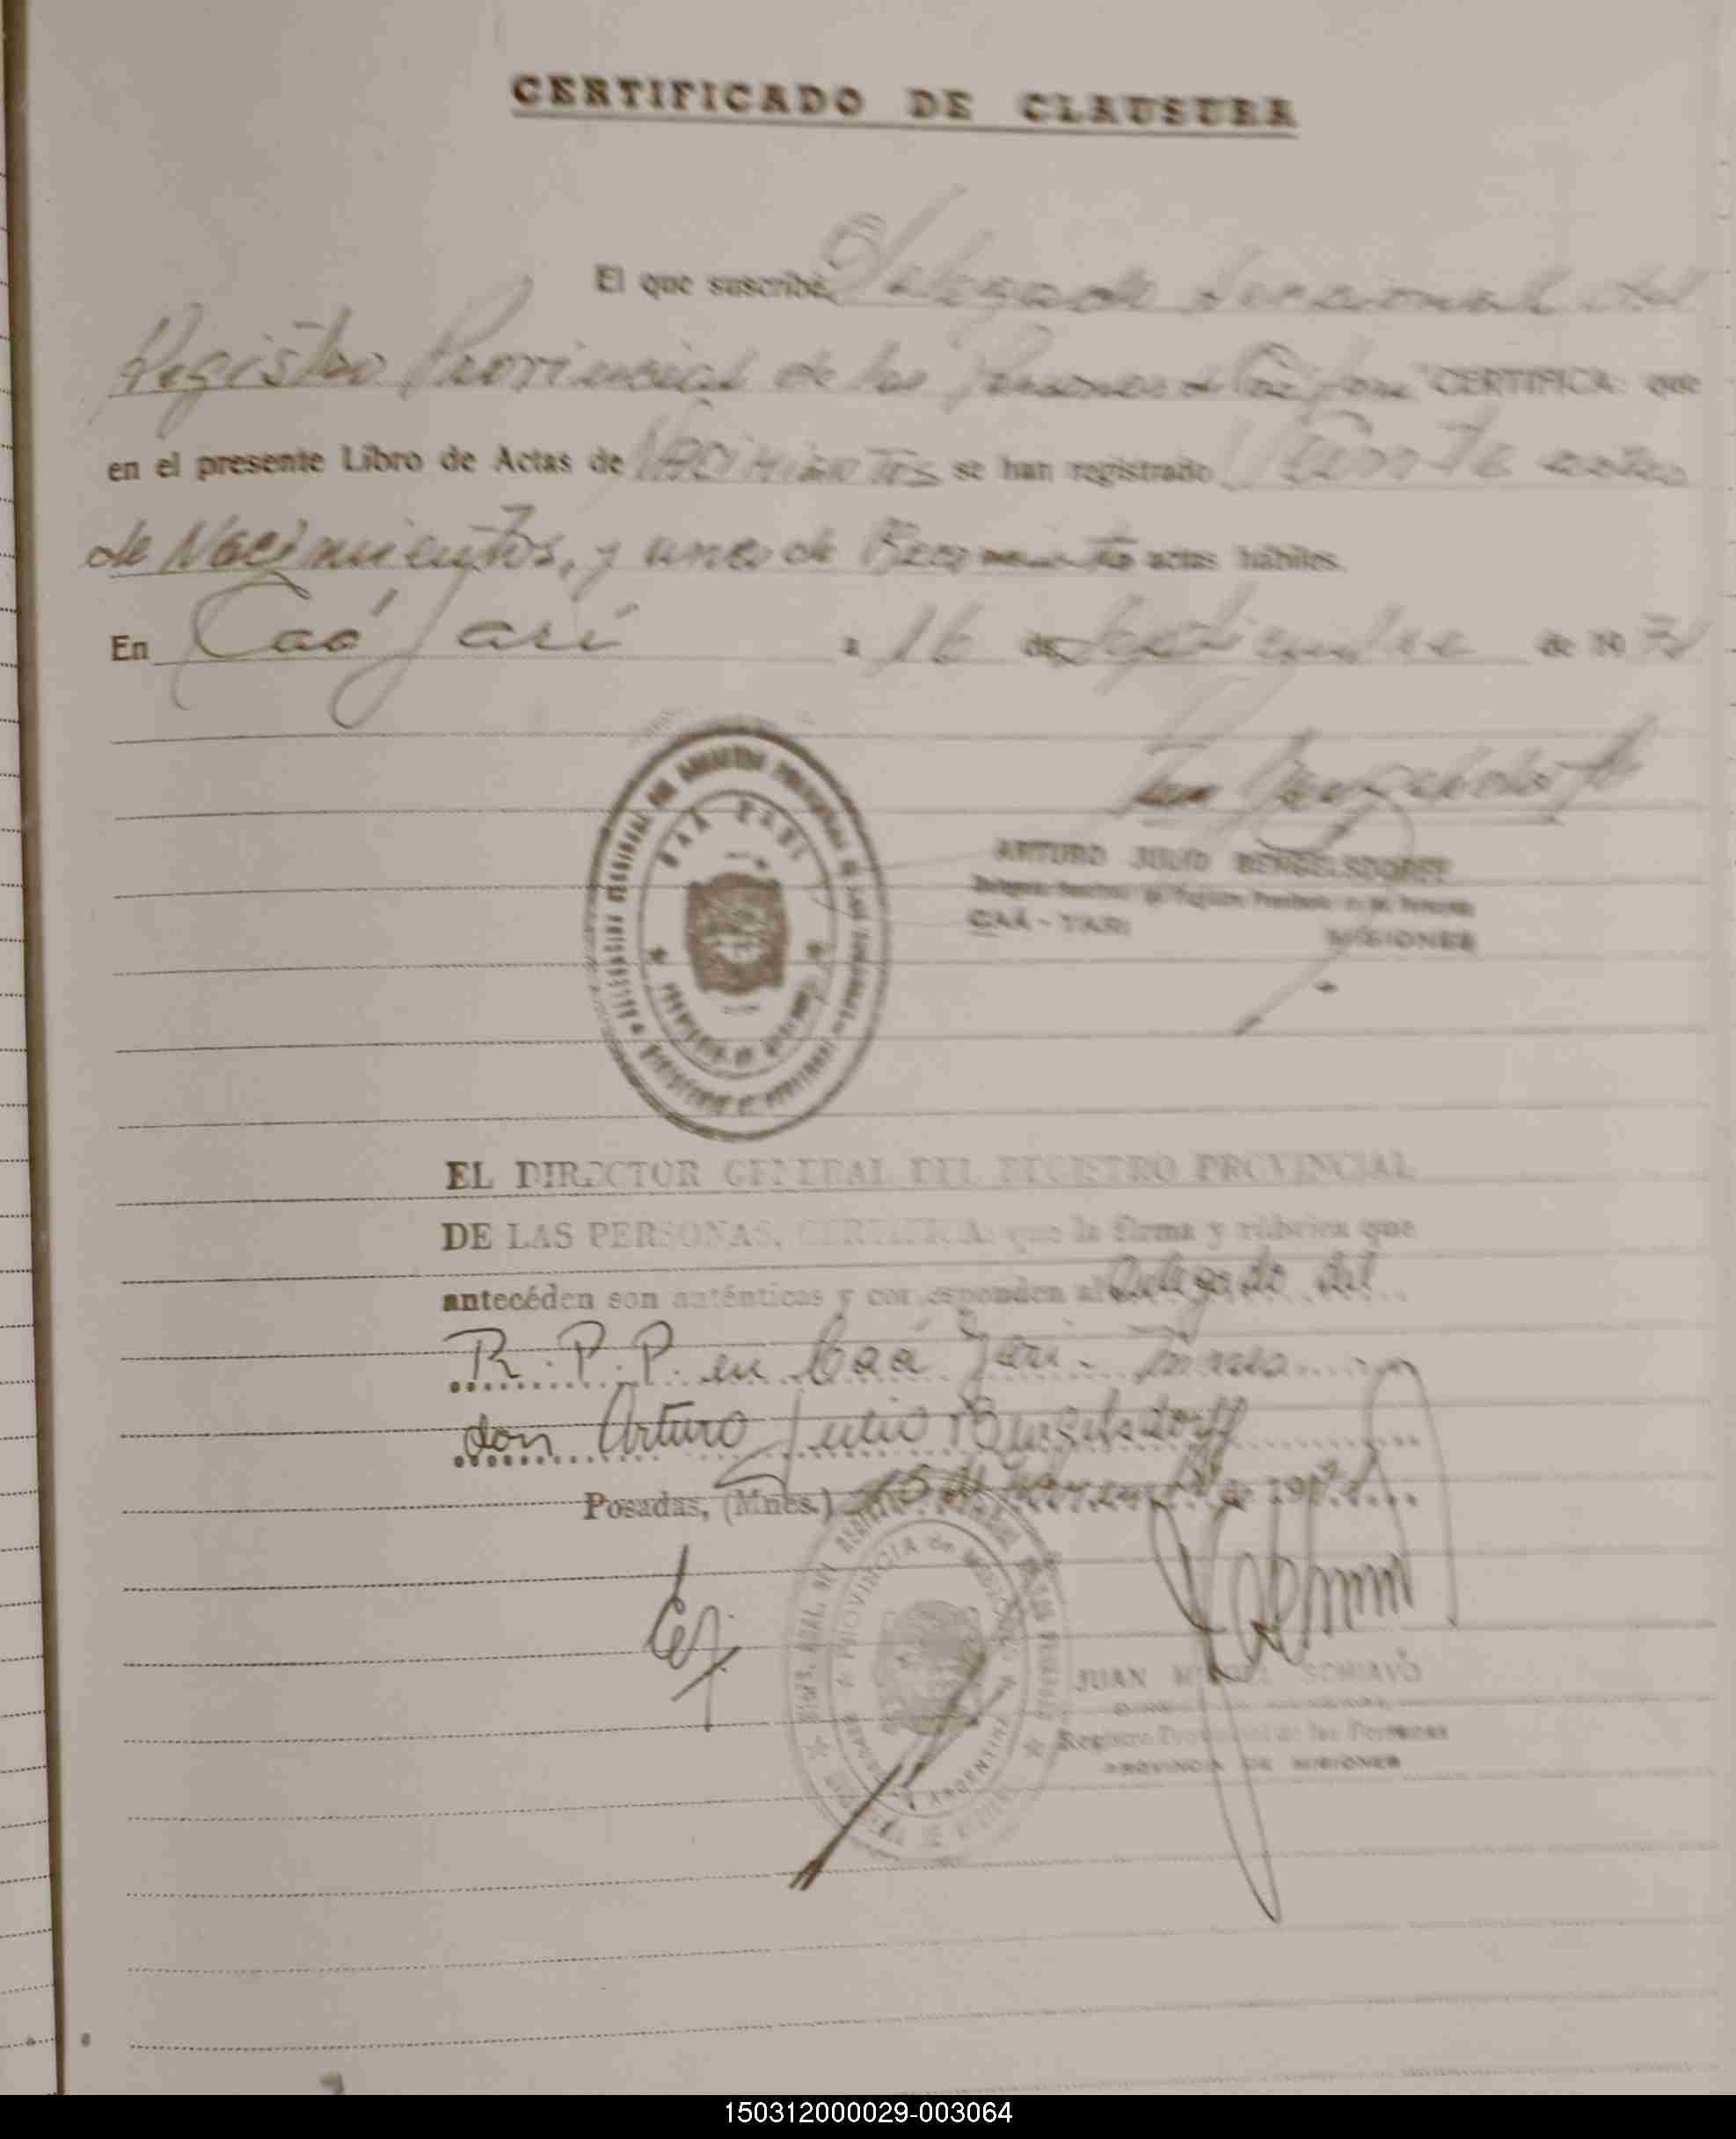 CERTIFICADO DE CLAUSURA
El que suscribe, Delegado Seccional del
Registro Provincial de las Personas CERTIFICA: que
en el presente Libro de Actas de Nacimientos se han registrado actas
de Nacimientos, y una de actas hábiles.
En Caá Yarí a 16 de Septiembre de 19
CAA YARI
PROVINCIA DE MISIONES
ARTURO JULIO BENGELSDORFF
Delegado Seccional del Registro Provincial de las Personas
CAÁ - YARI MISIONES
EL DIRECTOR GENERAL DEL REGISTRO PROVINCIAL
DE LAS PERSONAS, CERTIFICA: que la firma y rúbrica que
antecéden son auténticas y corresponden al Delegado del
R. P. P. en Caá Yari.
don Arturo Julio Bengelsdorff
Posadas, (Mnes.) de 197
PROVINCIA de MISIONES
ARGENTINA
JUAN MIGUEL SCHIAVO
DIRECTOR GENERAL
Registro Provincial de las Personas
PROVINCIA DE MISIONES
150312000029-003064